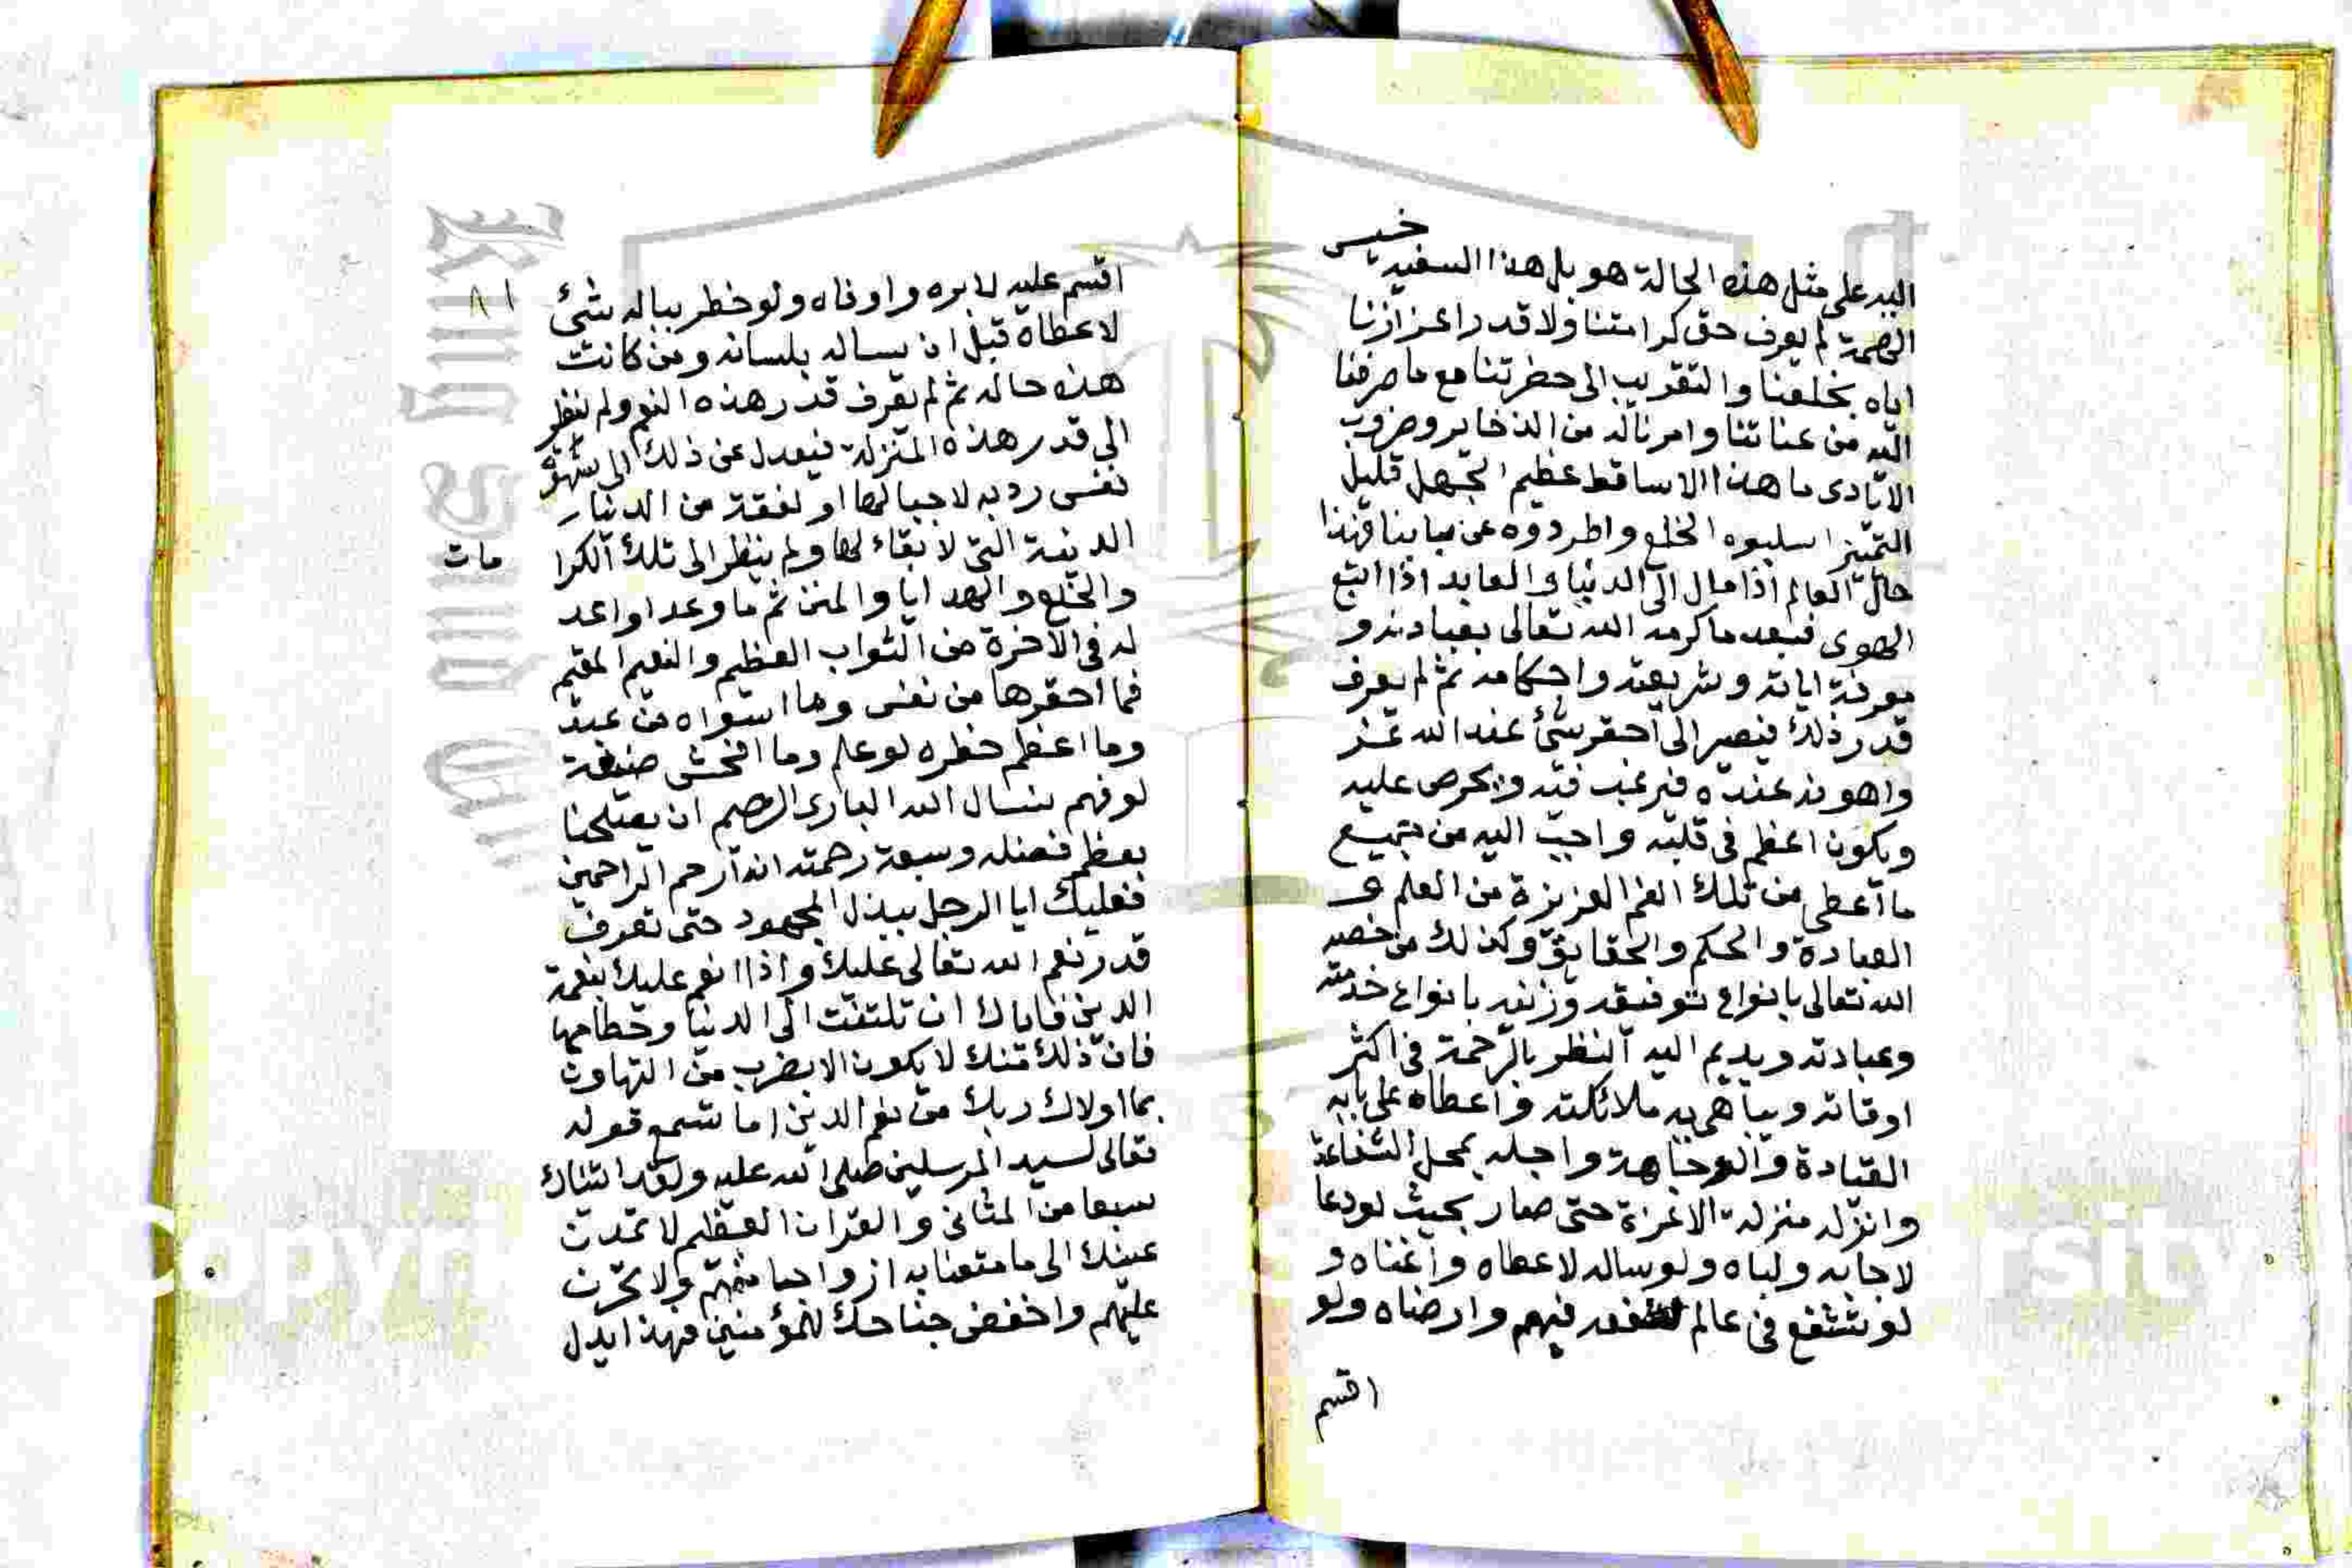 اليد على مثل هذه الحالة هو بل هذا السفيه خسيس
الهمة لم يعرف حق كرامتنا ولا قدر اعزازنا
اياه بخلعنا والتقريب الى حضرتنا مع ما صرفنا
اليه من عنايتنا وامرنا له من الذخاير وضروب
الايادى ما هذا الا ساقط عظيم الجهل قليل
التميز اسلبوه الخلع واطردوه عن بابنا فهذا
حال العالم اذا مال الى الدنيا والعابد اذا اتبع
الهوى فبعد ما اكرمه الله تعالى بعبادته و
معرفة اياته وشريعته واحكامه ثم لم يعرف
قدر ذلك فيصير الى احقر شئ عند الله عز
واهونه عنده فيرغب فيه ويحرص عليه
ويكون اعظم فى قلبه واحب اليه من جميع
ما اعطى من تلك النعم العزيزة من العلم و
العبادة والحكم والحقايق وكذلك من خصه
الله تعالى بانواع توفيقه وزينه بانواع خدمته
وعبادته ويديم اليه النظر بالرحمة فى اكثر
اوقاته ويباهى به ملائكته واعطاه على بابه
القيادة والوجاهة واجله بمحل الشفاعة
وانزله منزلة الاعزة حتى صار بحيث لو دعا
لاجابه ولباه ولو ساله لاعطاه واغناه و
لو تشفع فى عالم لشفعه فيهم وارضاه ولو
اقسم
٨١
اقسم عليه لابره واوفاه ولو خطر بباله شئ
لاعطاه قبل ان يساله بلسانه ومن كانت
هذه حاله ثم لم يعرف قدر هذه النعم ولم ينظر
الى قدر هذه المنزلة فيعدل عن ذلك الى شهوة
نفس ردية لا حيا لها او لفقة من الدنيا
الدنية التى لا بقاء لها ولم ينظر الى تلك الكرا
مات
والخلع والهدايا والمنن ثم ما وعد او اعد
له فى الاخرة من الثواب العظيم والنعيم المقيم
فما احقرها من نفس وما اسواه من عبد
وما اعظم خطره لو علم وما افحش صنيعة
لو فهم نسال الله البارى الرحيم ان يصلحنا
بعظم فضله وسعة رحمته انه ارحم الراحمين
فعليك ايا الرجل ببذل المجهود حتى تعرف
قدر نعم الله تعالى عليك واذا انعم عليك بنعمة
الدين فاياك ان تلتفت الى الدنيا وحطامها
فان ذلك منك لا يكون الا بضرب من التهاون
بما اولاك ربك من نعم الدين اما تسمع قوله
تعالى لسيد المرسلين صلى الله عليه ولقد اتيناك
سبعا من المثانى والقران العظيم لا تمدن
عينك الى ما متعنا به ازواجا منهم ولا تحزن
عليهم واخفض جناحك للمؤمنين فهذا يدل